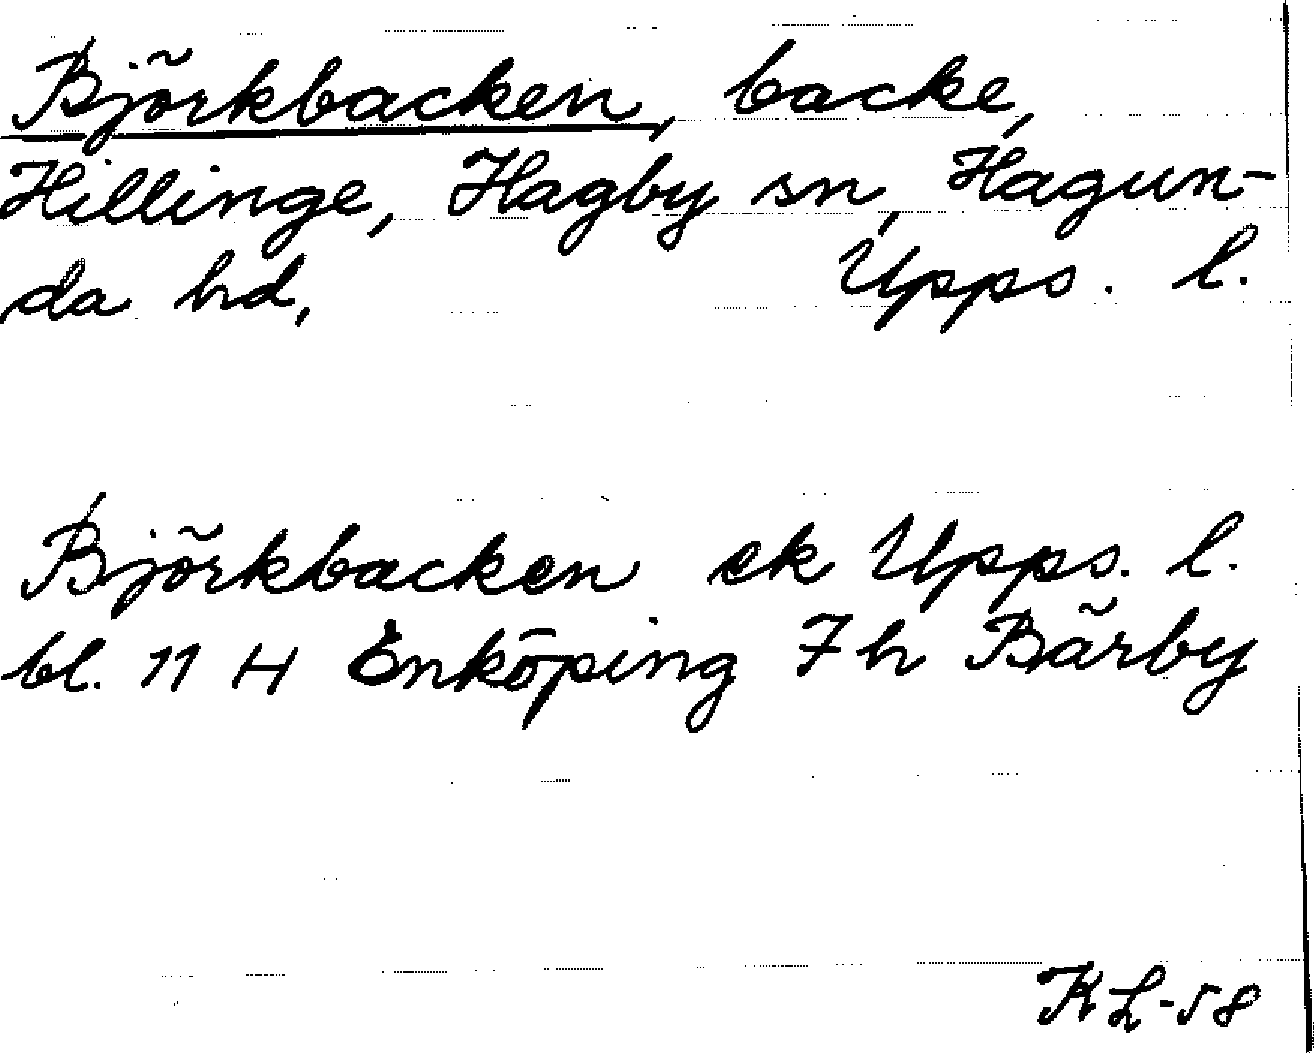 Björkbacken, backe,
Hillinge, Hagby sn, Hagun-
da hd, Upps. l.
Björkbacken ek Upps. l.
bl. 11 H Enköping 7 h Bärby
KL-58